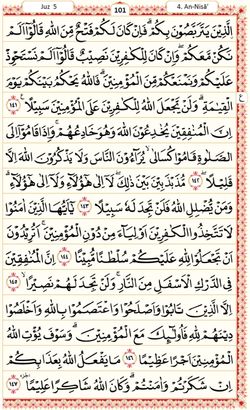 Juz 5
101
4. An-Nisā'
الَّذِيْنَ يَتَرَبَّصُوْنَ بِكُمْۗ فَاِنْ كَانَ لَكُمْ فَتْحٌ مِّنَ اللّٰهِ قَالُوْٓا اَلَمْ
نَكُنْ مَّعَكُمْۖ وَاِنْ كَانَ لِلْكٰفِرِيْنَ نَصِيْبٌۙ قَالُوْٓا اَلَمْ نَسْتَحْوِذْ
عَلَيْكُمْ وَنَمْنَعْكُمْ مِّنَ الْمُؤْمِنِيْنَۗ فَاللّٰهُ يَحْكُمُ بَيْنَكُمْ يَوْمَ
الْقِيٰمَةِۗ وَلَنْ يَّجْعَلَ اللّٰهُ لِلْكٰفِرِيْنَ عَلَى الْمُؤْمِنِيْنَ سَبِيْلًا ࣖ ١٤١
اِنَّ الْمُنٰفِقِيْنَ يُخٰدِعُوْنَ اللّٰهَ وَهُوَ خَادِعُهُمْۚ وَاِذَا قَامُوْٓا اِلَى
الصَّلٰوةِ قَامُوْا كُسَالٰىۙ يُرَاۤءُوْنَ النَّاسَ وَلَا يَذْكُرُوْنَ اللّٰهَ اِلَّا
قَلِيْلًاۖ ١٤٢ مُّذَبْذَبِيْنَ بَيْنَ ذٰلِكَۖ لَآ اِلٰى هٰٓؤُلَاۤءِ وَلَآ اِلٰى هٰٓؤُلَاۤءِۗ
وَمَنْ يُّضْلِلِ اللّٰهُ فَلَنْ تَجِدَ لَهٗ سَبِيْلًا ١٤٣ يٰٓاَيُّهَا الَّذِيْنَ اٰمَنُوْا
لَا تَتَّخِذُوا الْكٰفِرِيْنَ اَوْلِيَاۤءَ مِنْ دُوْنِ الْمُؤْمِنِيْنَۚ اَتُرِيْدُوْنَ
اَنْ تَجْعَلُوْا لِلّٰهِ عَلَيْكُمْ سُلْطٰنًا مُّبِيْنًا ١٤٤ اِنَّ الْمُنٰفِقِيْنَ
فِى الدَّرْكِ الْاَسْفَلِ مِنَ النَّارِۚ وَلَنْ تَجِدَ لَهُمْ نَصِيْرًاۙ ١٤٥
اِلَّا الَّذِيْنَ تَابُوْا وَاَصْلَحُوْا وَاعْتَصَمُوْا بِاللّٰهِ وَاَخْلَصُوْا
دِيْنَهُمْ لِلّٰهِ فَاُولٰۤىِٕكَ مَعَ الْمُؤْمِنِيْنَۗ وَسَوْفَ يُؤْتِ اللّٰهُ
الْمُؤْمِنِيْنَ اَجْرًا عَظِيْمًا ١٤٦ مَا يَفْعَلُ اللّٰهُ بِعَذَابِكُمْ
اِنْ شَكَرْتُمْ وَاٰمَنْتُمْۗ وَكَانَ اللّٰهُ شَاكِرًا عَلِيْمًا ١٤٧